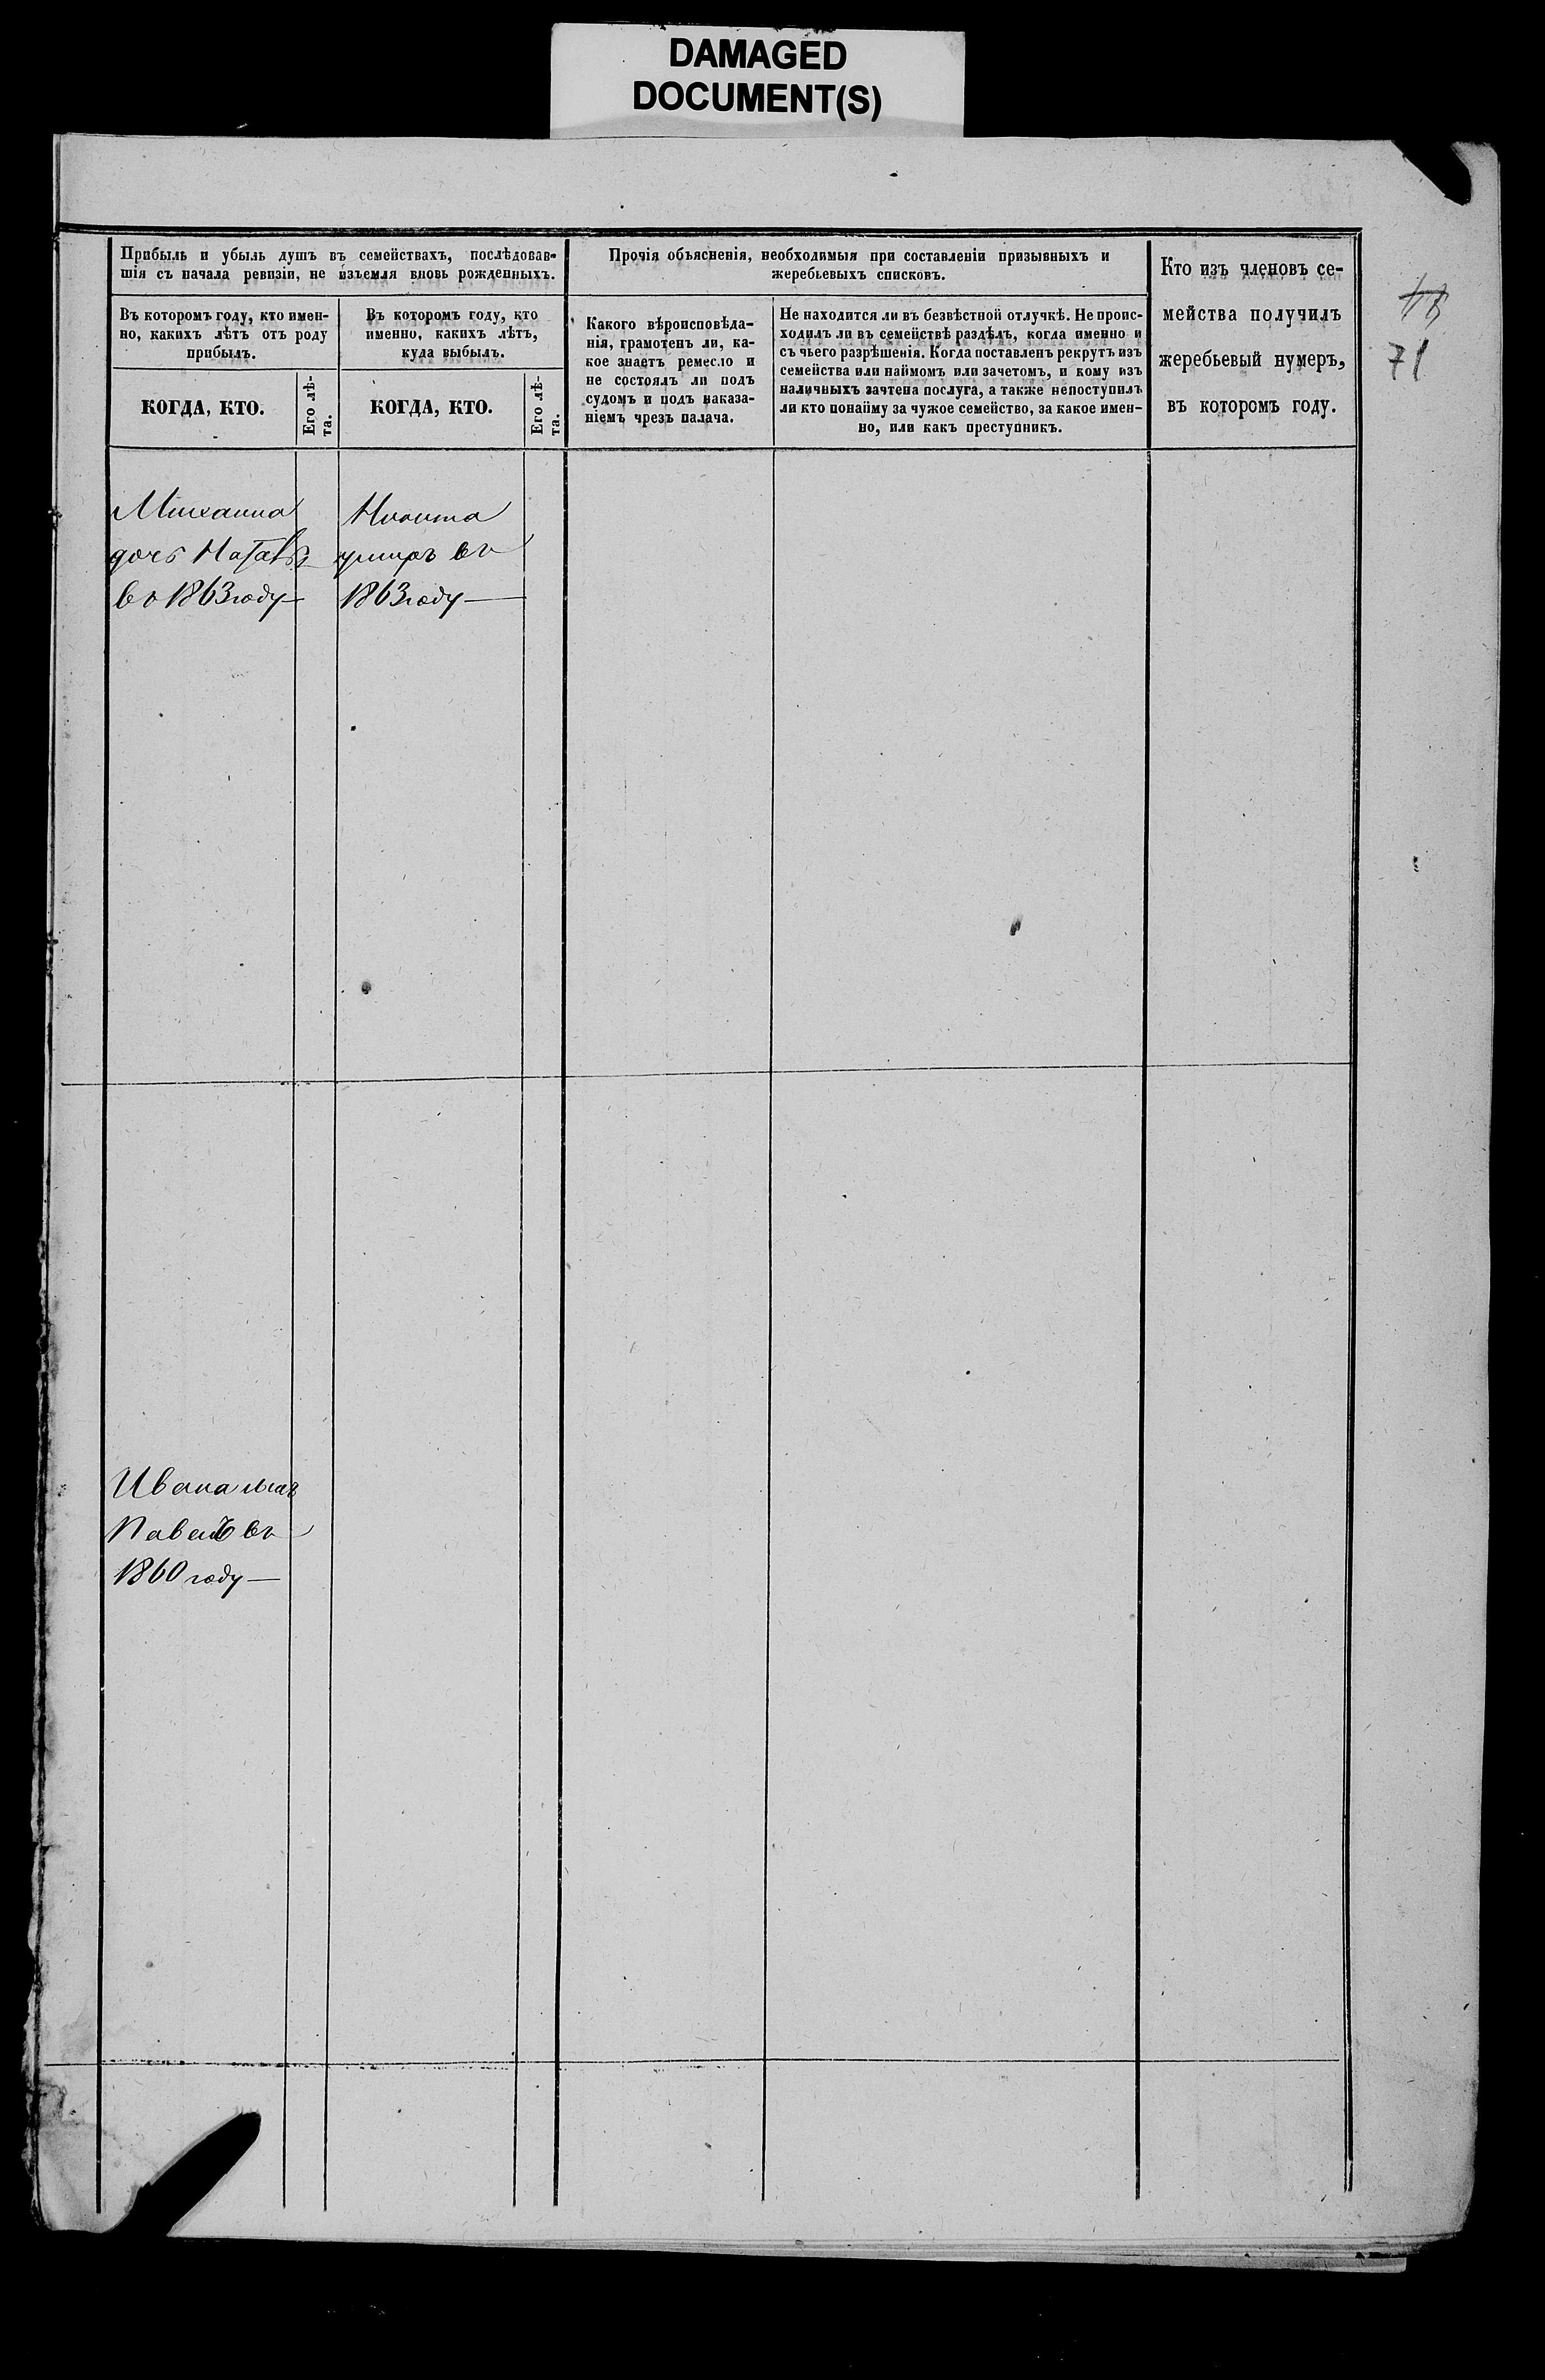 DAMAGED
DOCUMENT(S)
Прибыль и убыль душъ въ семействахъ, послѣдовав-
шія съ начала ревизіи, не изъемля вновь рожденныхъ.
Въ которомъ году, кто имен-
но, какихъ лѣтъ отъ роду
прибылъ.
КОГДА, КТО.
Его лѣ-
та.
Въ которомъ году, кто
именно, какихъ лѣтъ,
куда выбылъ.
КОГДА, КТО.
Его лѣ-
та.
Прочія объясненія, необходимыя при составленіи призывныхъ и
жеребьевыхъ списковъ.
Какого вѣроисповѣда-
нія, грамотенъ ли, ка-
кое знаетъ ремесло и
не состоялъ ли подъ
судомъ и подъ наказа-
ніемъ чрезъ палача.
Не находится ли въ безвѣстной отлучкѣ. Не проис-
ходилъ ли въ семействѣ раздѣлъ, когда именно и
съ чьего разрѣшенія. Когда поставленъ рекрутъ изъ
семейства или наймомъ или зачетомъ, и кому изъ
наличныхъ зачтена послуга, а также непоступилъ
ли кто понайму за чужое семейство, за какое имен-
но, или какъ преступникъ.
Кто изъ членовъ се-
мейства получилъ
жеребьевый нумеръ,
въ которомъ году.
71
Михаила
дочь
въ 1863 году
Никита
умиръ въ
1863 году
Ивана
Павелъ въ
1860 году